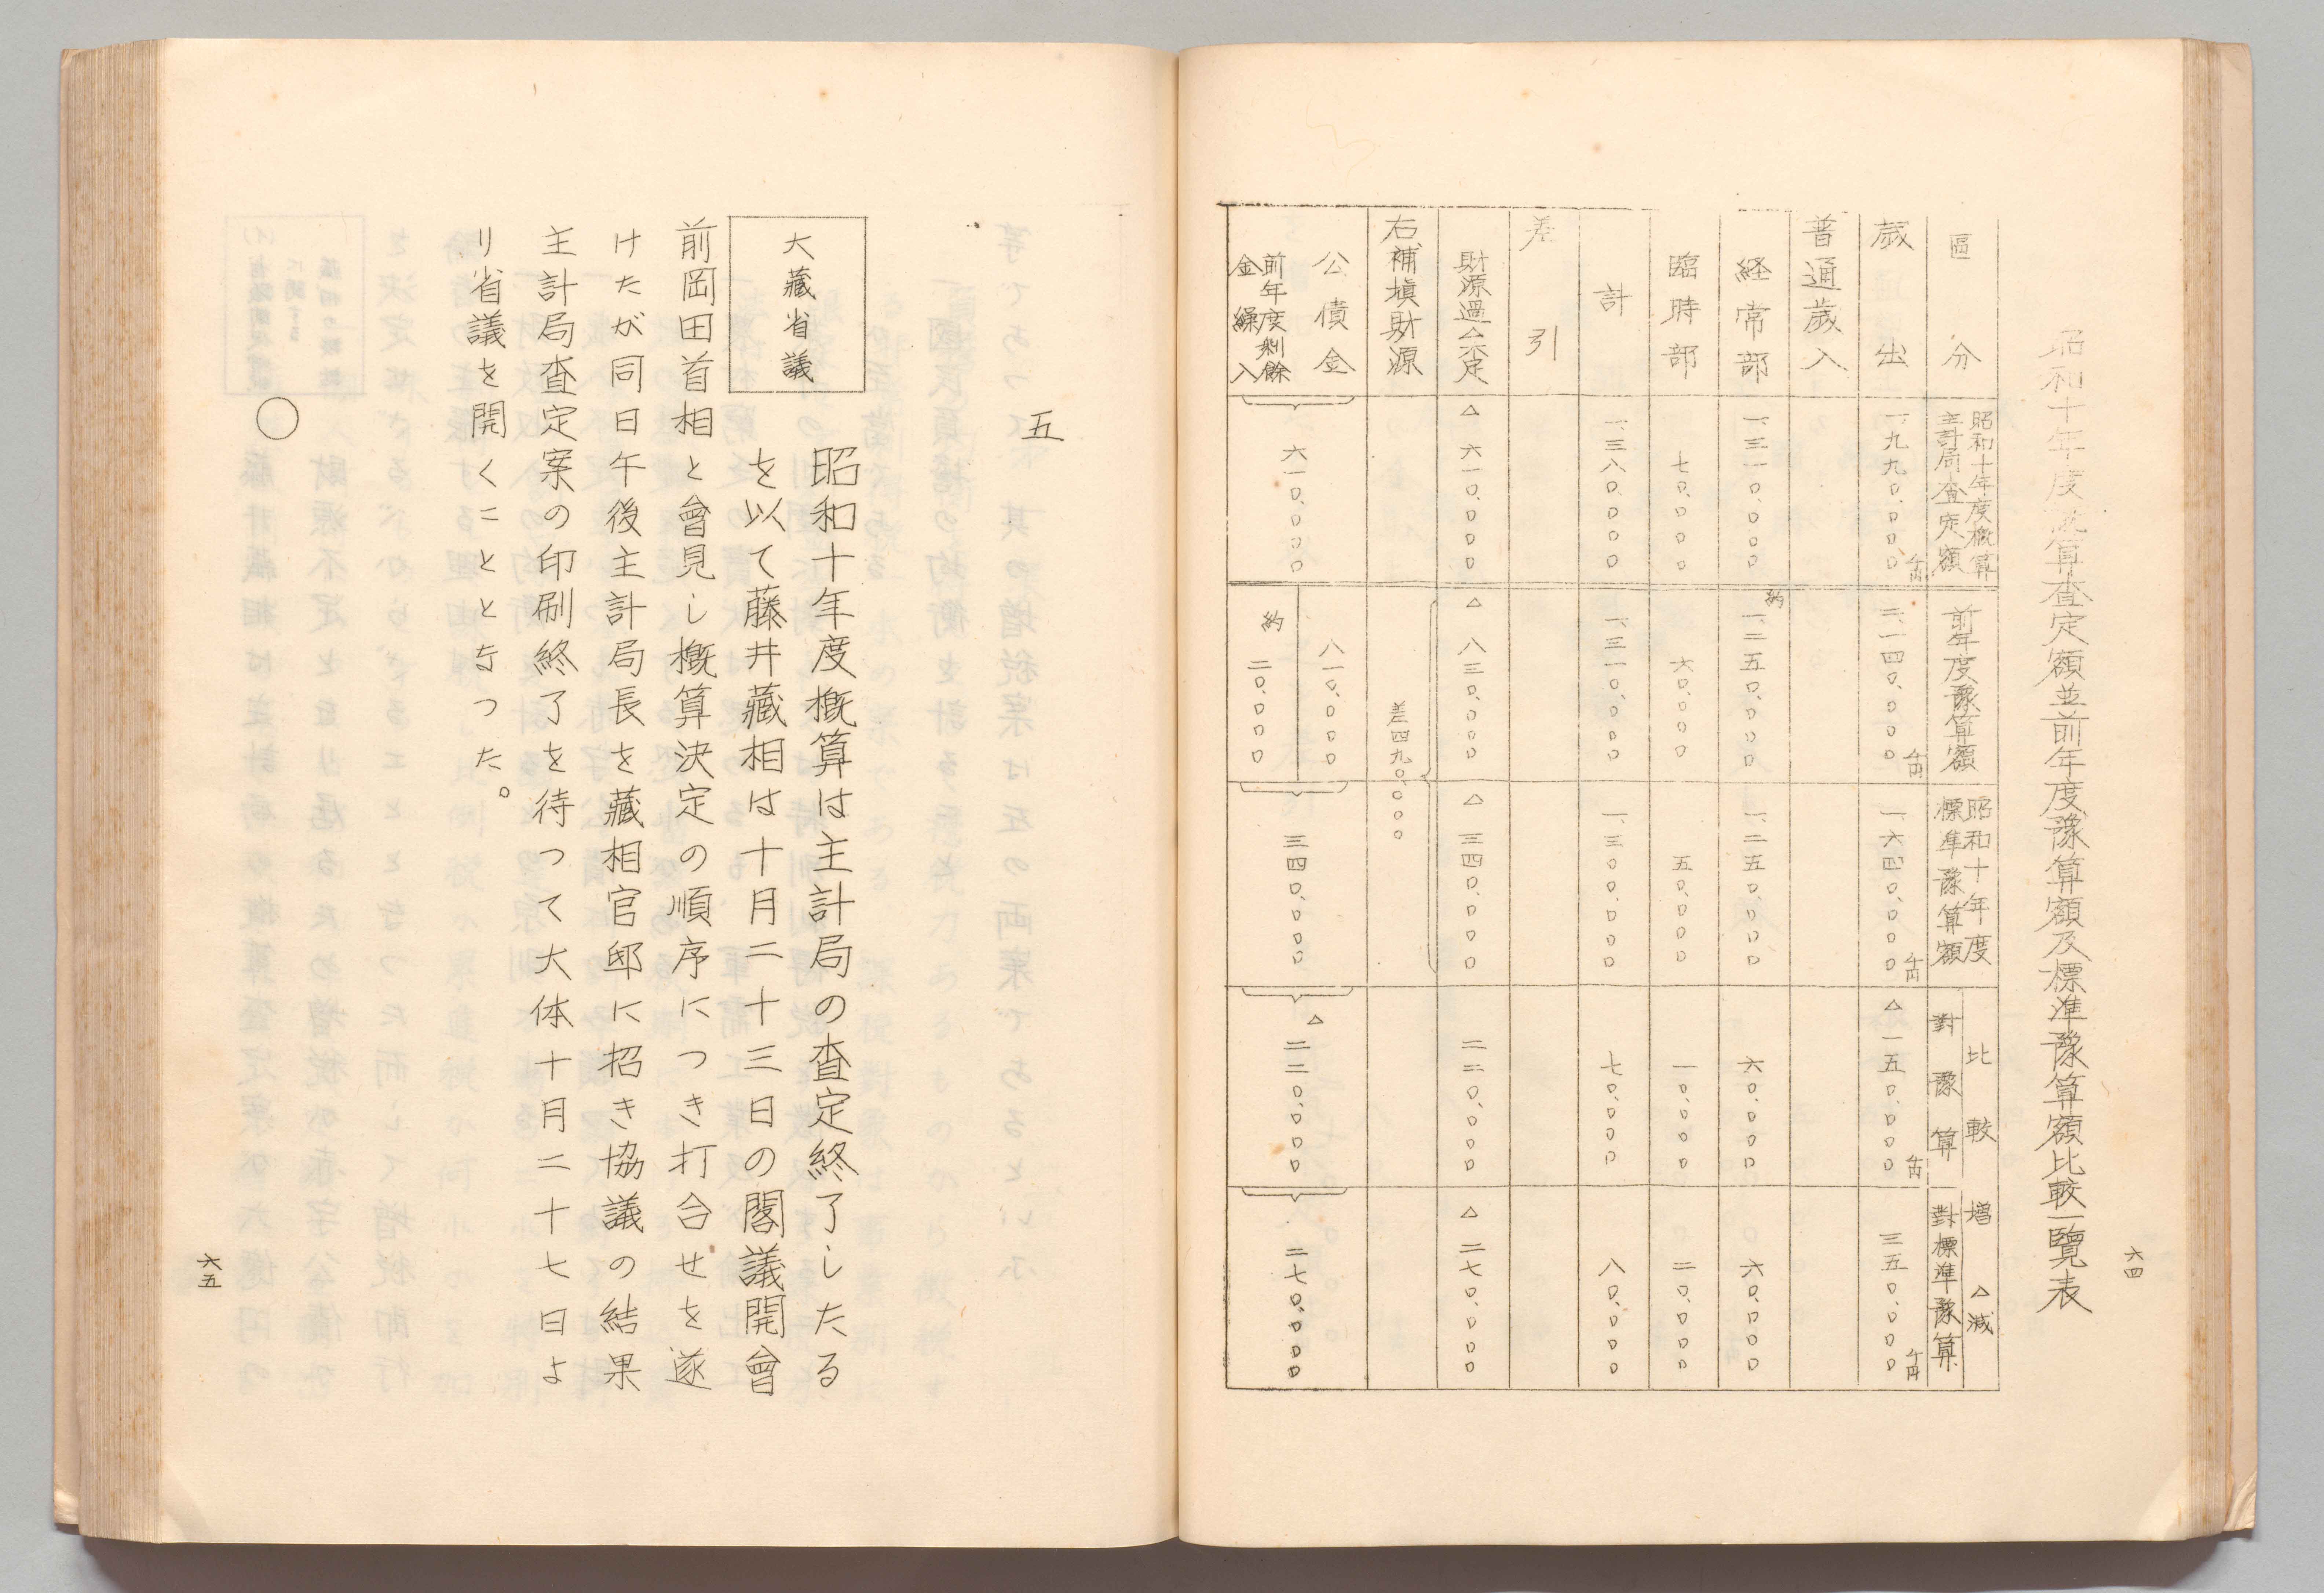 六四
昭和十年度概算査定額並前年度豫算額及標準豫算額比較一覽表
區分
昭和十年度概算
主計局査定額
前年度豫算額
昭和十年度
標準豫算額
比較增△減
對豫算
對標準豫算
歲出
一、九九〇、〇〇〇千円
二、一四〇、〇〇〇千円
一、六四〇、〇〇〇千円
△一五〇、〇〇〇千円
三五〇、〇〇〇千円
普通歲入
経常部
一、三一〇、〇〇〇
約一、二五〇、〇〇〇
一、二五〇、〇〇〇
六〇、〇〇〇
六〇、〇〇〇
臨時部
七〇、〇〇〇
六〇、〇〇〇
五〇、〇〇〇
一〇、〇〇〇
二〇、〇〇〇
計
一、三八〇、〇〇〇
一、三一〇、〇〇〇
一、三〇〇、〇〇〇
七〇、〇〇〇
八〇、〇〇〇
差引
財源過△不足
△六一〇、〇〇〇
△八三〇、〇〇〇
△三四〇、〇〇〇
二二〇、〇〇〇
△二七〇、〇〇〇
右補塡財源
差四九〇、〇〇〇
公債金
前年度剰餘
金繰入
六一〇、〇〇〇
八一〇、〇〇〇
約二〇、〇〇〇
三四〇、〇〇〇
△二二〇、〇〇〇
二七〇、〇〇〇
五
大藏省議
昭和十年度槪算は主計局の査定終了したる
を以て藤井藏相は十月二十三日の閣議開會
前岡田首相と會見し槪算決定の順序につき打合せを遂
けたが同日午後主計局長を藏相官邸に招き協議の結果
主計局査定案の印刷終了を待つて大体十月二十七日よ
り省議を開くことゝなつた。
〇
六五